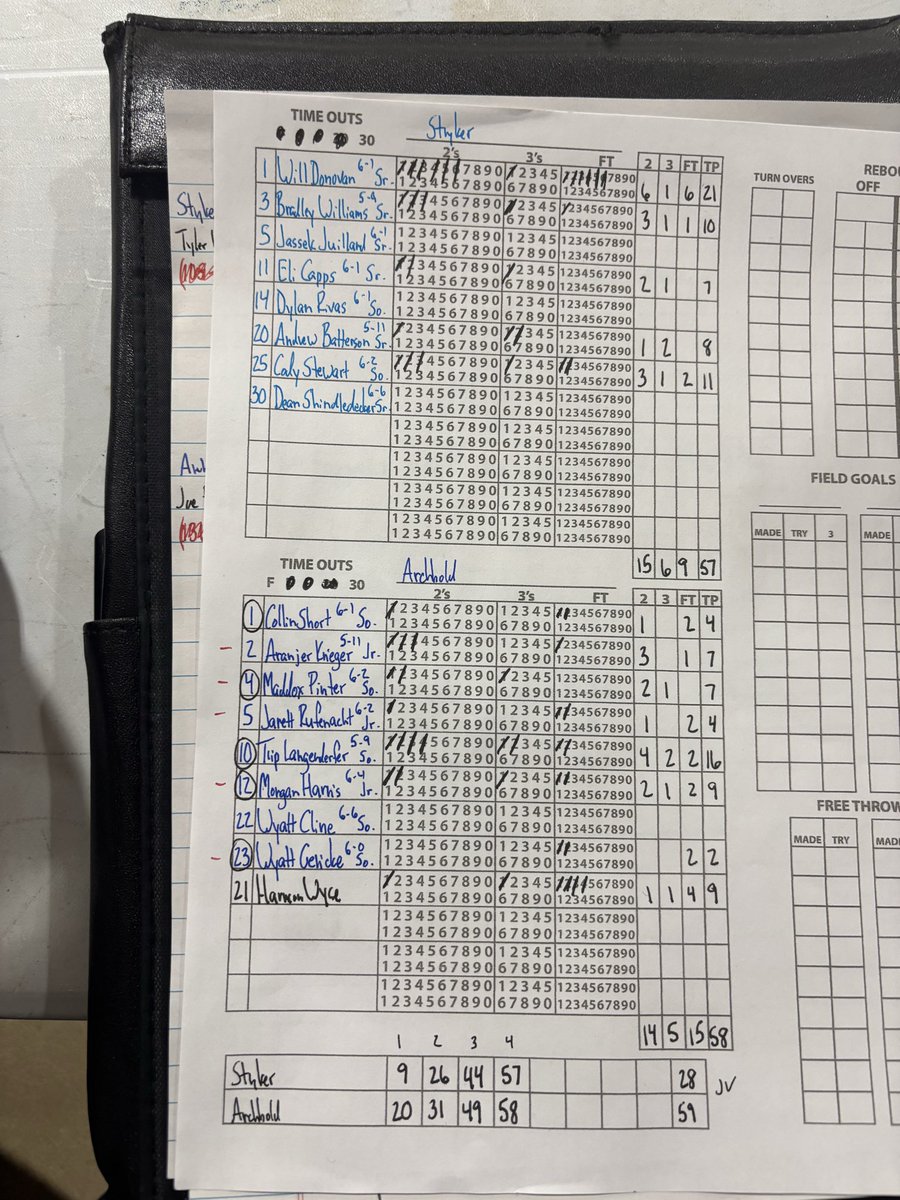 TIME OUTS
30
Styker
2's 3's FT 2 3 FT TP
1 Will Donovan 6-1 Sr. 1234567890 12345 1234567890 6 1 6 21
1234567890 67890 1234567890
3 Bradley Williams 5-9 Sr. 1234567890 12345 1234567890 3 1 1 10
1234567890 67890 1234567890
5 Jassek Juillard 6-1 Sr. 1234567890 12345 1234567890
1234567890 67890 1234567890
11 Eli Capps 6-1 Sr. 1234567890 12345 1234567890 2 1 7
1234567890 67890 1234567890
14 Dylan Rivas 6-1 So. 1234567890 12345 1234567890
1234567890 67890 1234567890
20 Andrew Batterson 5-11 Sr. 1234567890 12345 1234567890 1 2 8
1234567890 67890 1234567890
25 Caly Stewart 6-2 So. 1234567890 12345 1234567890 3 1 2 11
1234567890 67890 1234567890
30 Dean Shindledecker 6-6 Sr. 1234567890 12345 1234567890
1234567890 67890 1234567890
1234567890 12345 1234567890
1234567890 67890 1234567890
1234567890 12345 1234567890
1234567890 67890 1234567890
1234567890 12345 1234567890
1234567890 67890 1234567890
1234567890 12345 1234567890
1234567890 67890 1234567890
15 6 9 57
TIME OUTS
F 30
Archbold
2's 3's FT 2 3 FT TP
1 Collin Short 6-1 So. 1234567890 12345 1234567890 1 2 4
1234567890 67890 1234567890
2 Aranjer Krieger 5-11 Jr. 1234567890 12345 1234567890 3 1 7
1234567890 67890 1234567890
4 Maddox Pinter 6-2 So. 1234567890 12345 1234567890 2 1 7
1234567890 67890 1234567890
5 Jarett Rufenacht 6-2 Jr. 1234567890 12345 1234567890 1 2 4
1234567890 67890 1234567890
10 Trip Langenderfer 5-9 So. 1234567890 12345 1234567890 4 2 2 16
1234567890 67890 1234567890
12 Morgan Harris 6-4 Jr. 1234567890 12345 1234567890 2 1 2 9
1234567890 67890 1234567890
22 Wyatt Cline 6-6 So. 1234567890 12345 1234567890
1234567890 67890 1234567890
23 Wyatt Gericke 6-0 So. 1234567890 12345 1234567890 2 2
1234567890 67890 1234567890
21 Harrison Wyse 1234567890 12345 1234567890 1 1 4 9
1234567890 67890 1234567890
1234567890 12345 1234567890
1234567890 67890 1234567890
1234567890 12345 1234567890
1234567890 67890 1234567890
1234567890 12345 1234567890
1234567890 67890 1234567890
14 5 15 58
1 2 3 4
Styker 9 26 44 57 28
JV
Archbold 20 31 49 58 59
TURN OVERS
REBOU
OFF
FIELD GOALS
MADE TRY 3 MADE
FREE THROW
MADE TRY MAD
Stryke
Tyler